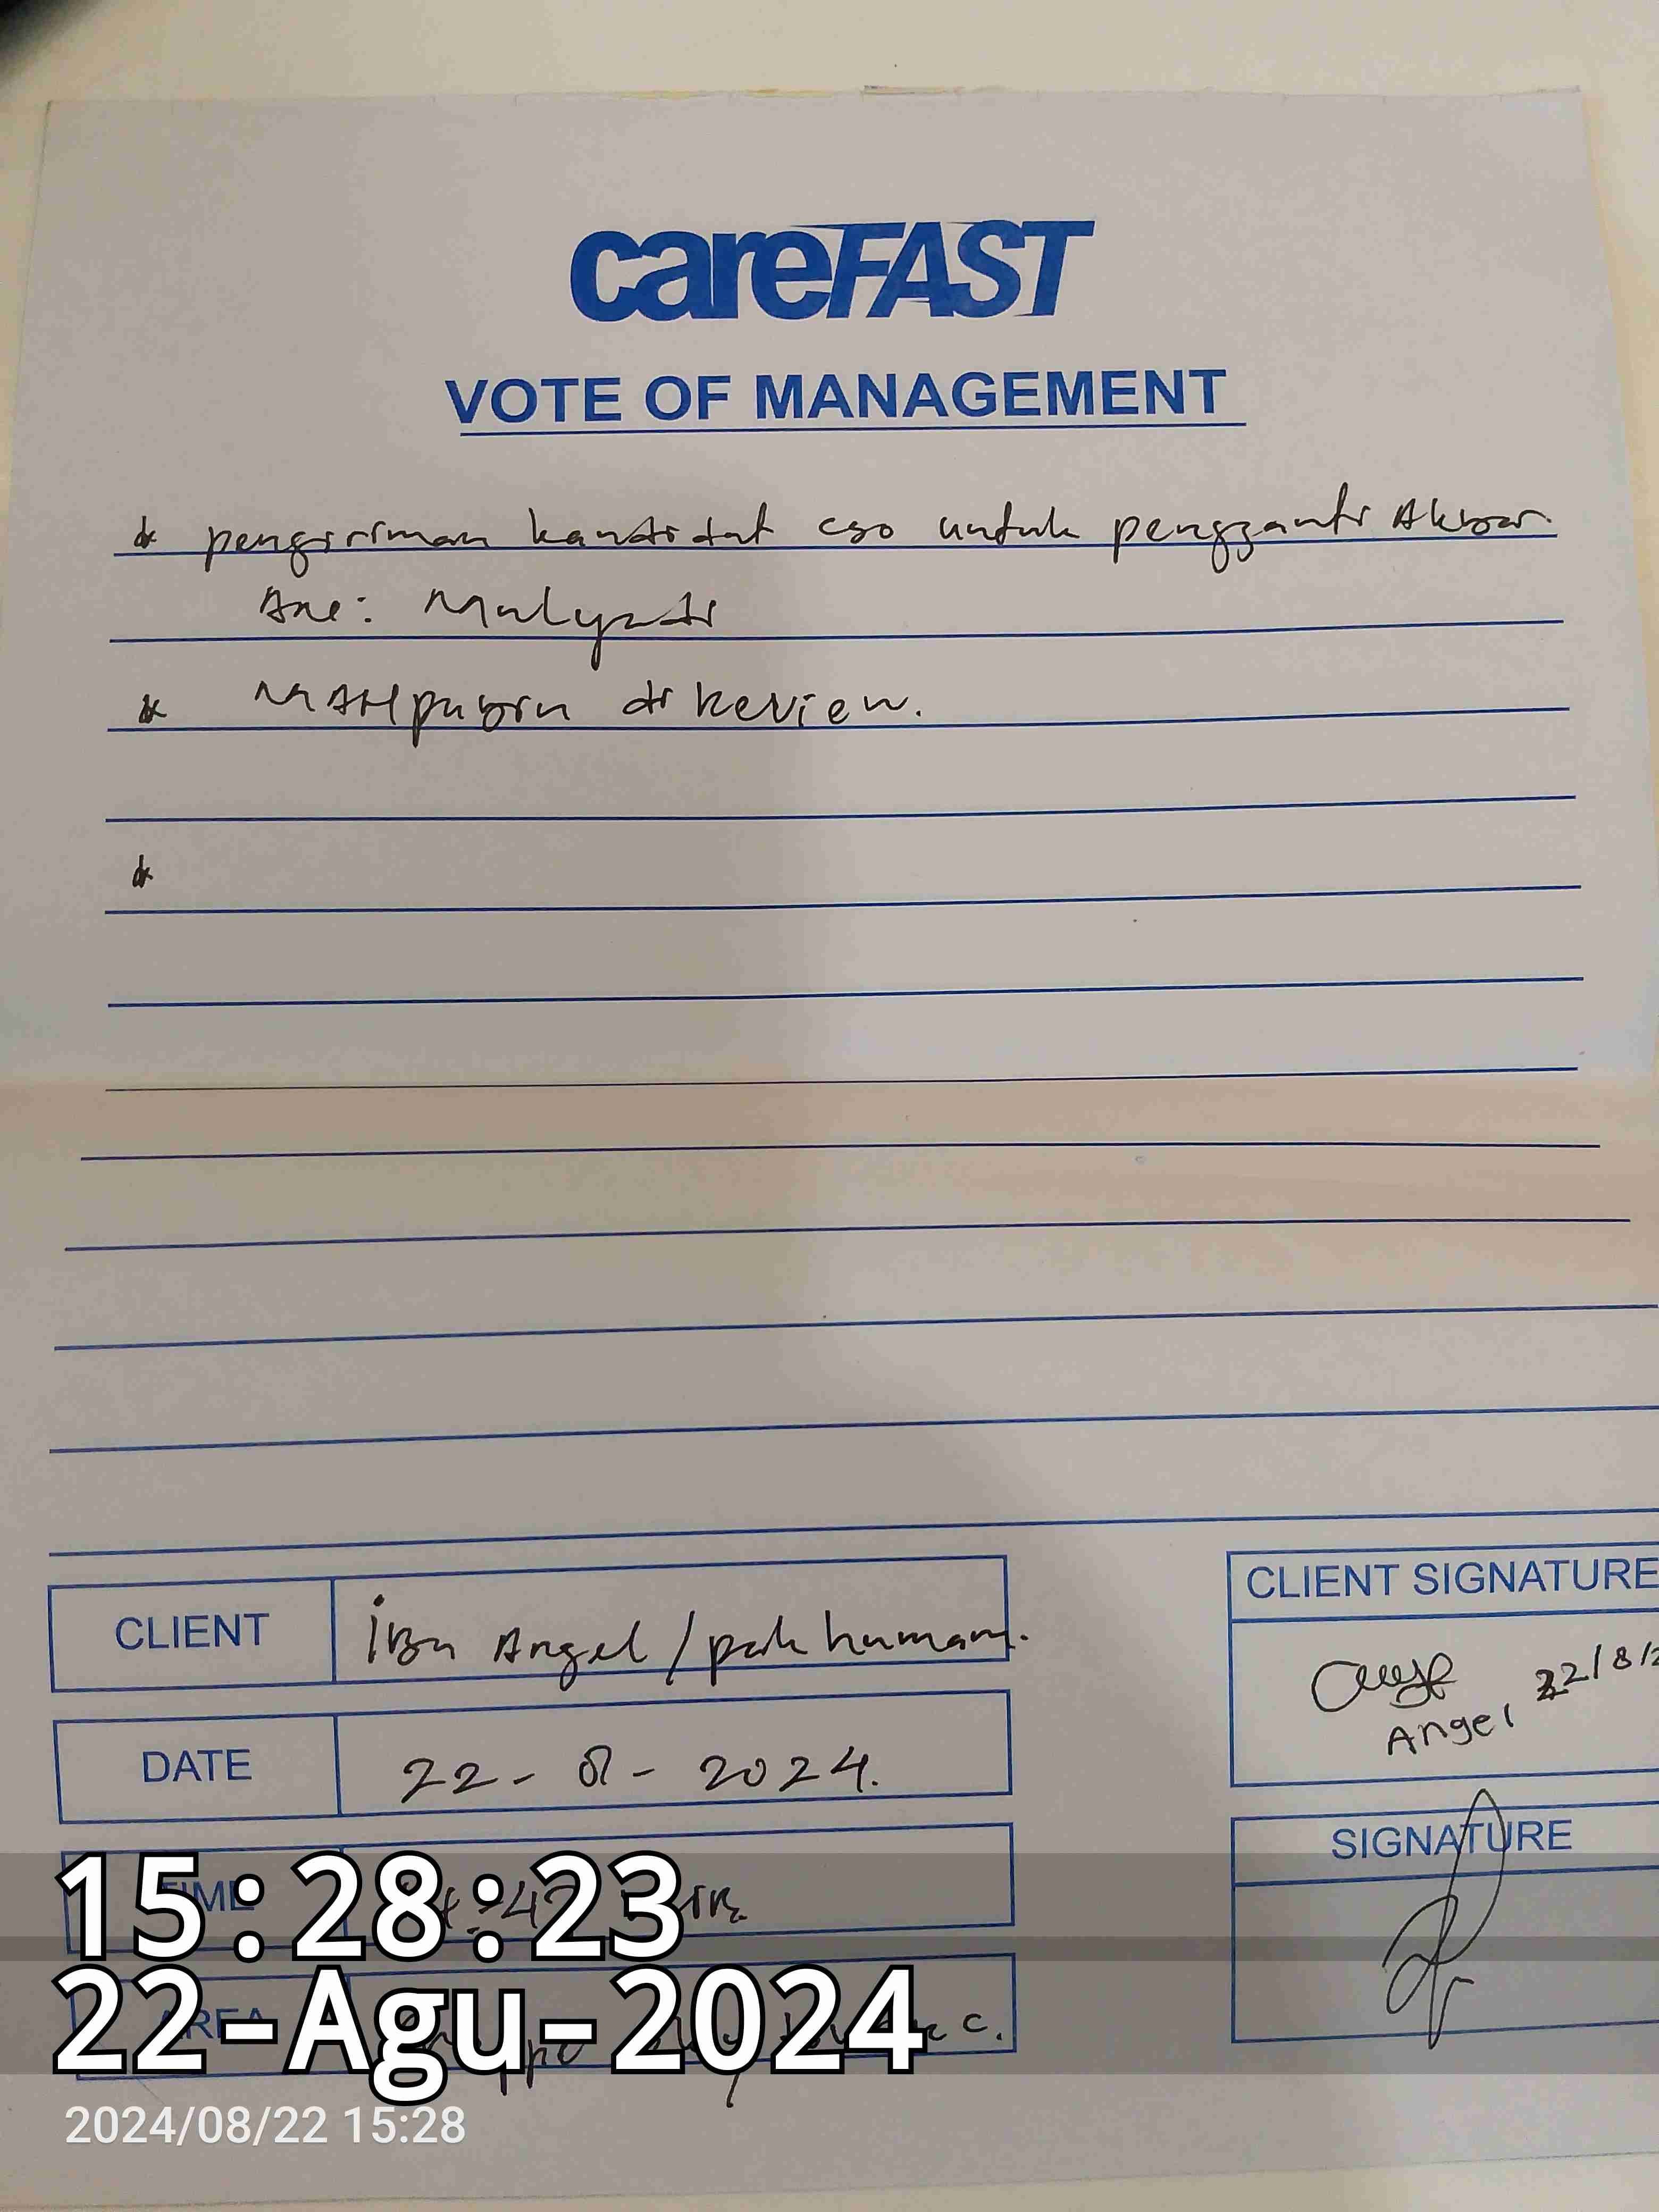 careFAST
VOTE OF MANAGEMENT
* pengiriman kandidat cso untuk pengganti Akbar.
Ane: Mulyadi
* MAHpudin di Review.
*
CLIENT
Ibu Angel / pak humam.
DATE
22 - 8 - 2024.
TIME
AREA
c.
CLIENT SIGNATURE
Angel 22/8/2
SIGNATURE
15:28:23
22-Agu-2024
2024/08/22 15:28